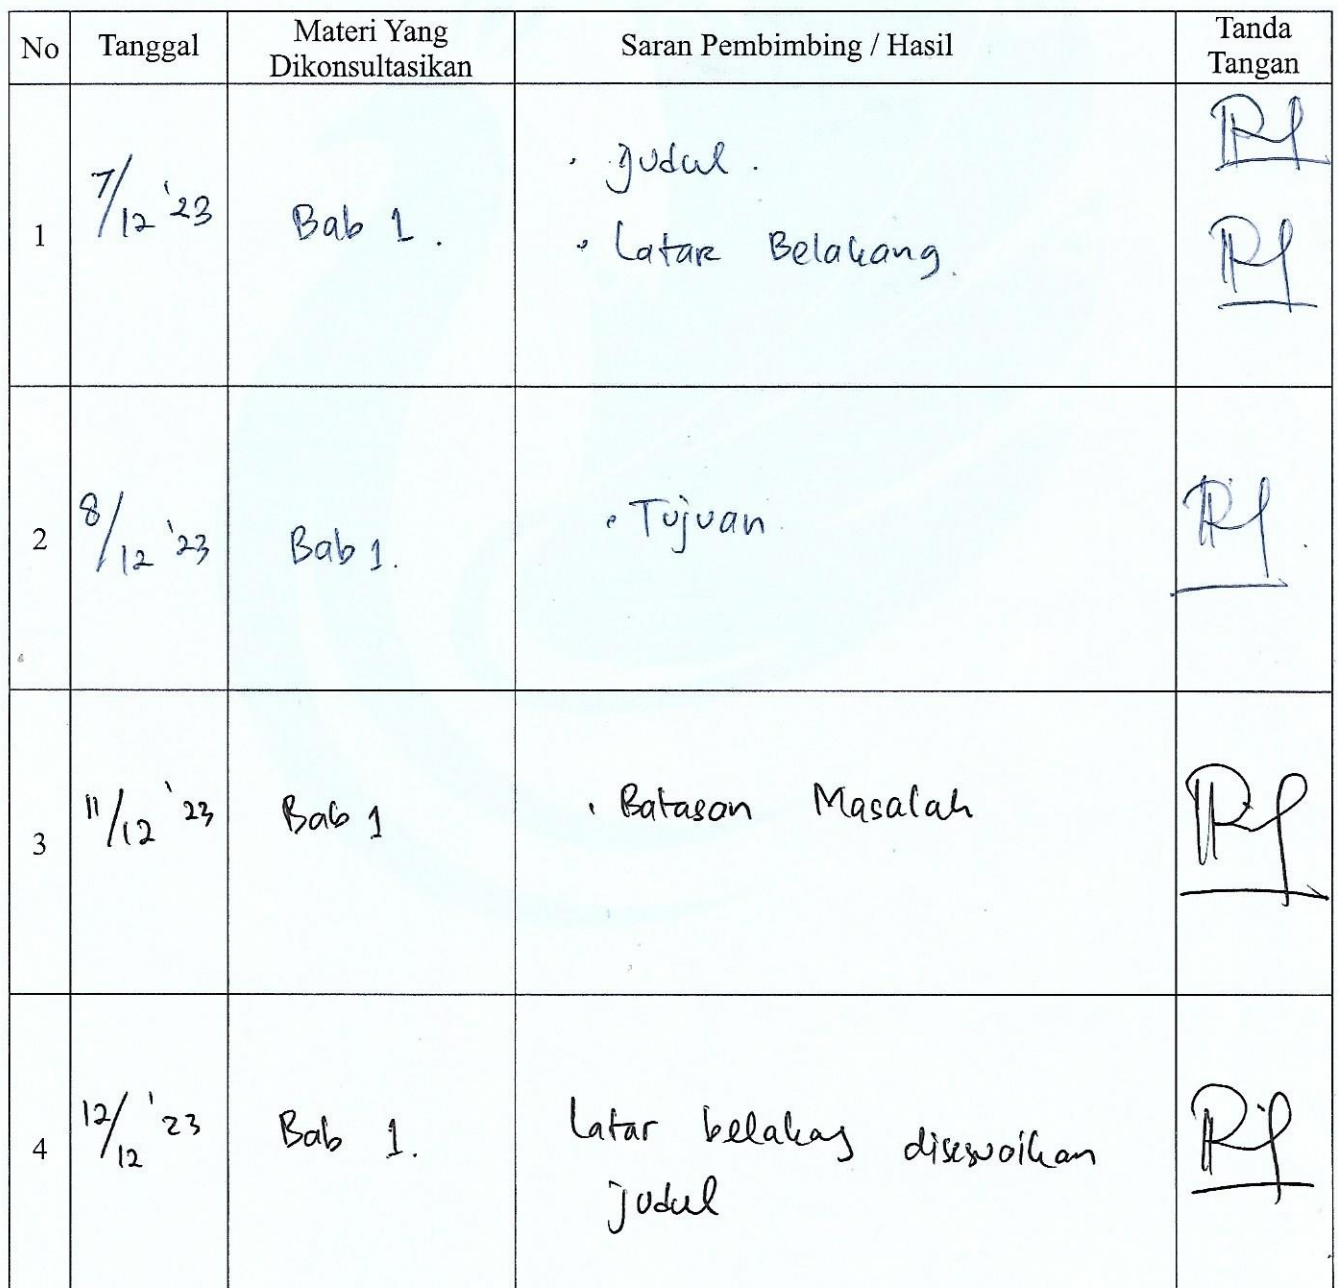 No Tanggal Materi Yang Dikonsultasikan Saran Pembimbing / Hasil Tanda Tangan
1 7/12 '23 Bab 1. • Judul.
• Latar Belakang.
2 8/12 '23 Bab 1. • Tujuan
3 11/12 '23 Bab 1 • Batasan Masalah
4 12/12 '23 Bab 1. Latar belakag disesuaikan
judul